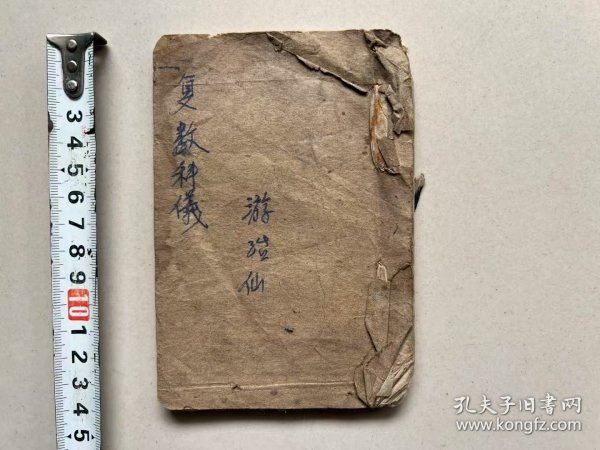 夏教科儀
游
仙
3 4 5 6 7 8 9 10 1 2 3 4 5
孔夫子旧書网
www.kongfz.com